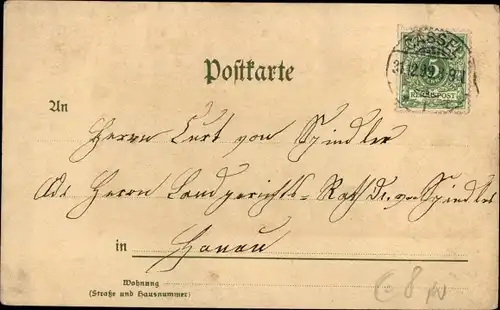 CASSEL
31.12.99.8-9N
5
REICHSPOST
Postkarte
An
Herrn Curt von Spindler
Adr. Herrn Landgerichts-Rath Dr. v. Spindler
in Hanau
Wohnung
(Straße und Hausnummer)
C 8